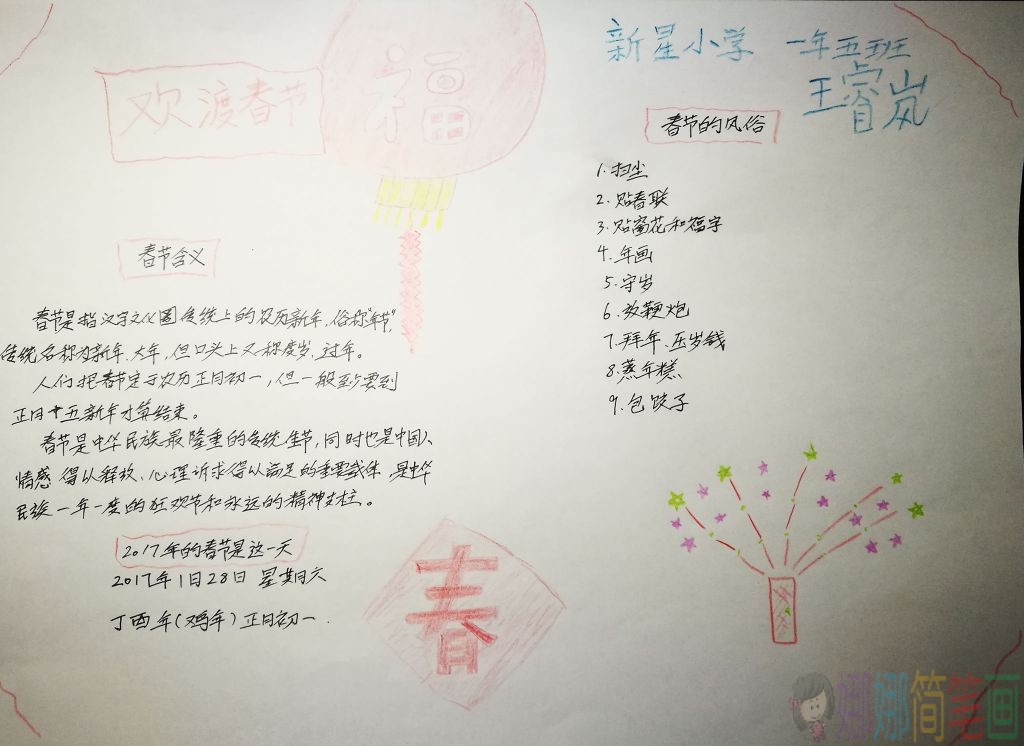 欢渡春节
福
春节含义
春节是指汉字文化圈传统上的农历新年，俗称“年节”，
传统名称为新年、大年，但口头上又称度岁、过年。
人们把春节定于农历正月初一，但一般至少要到
正月十五新年才算结束。
春节是中华民族最隆重的传统佳节，同时也是中国人
情感得以释放、心理诉求得以满足的重要载体，是中华
民族一年一度的狂欢节和永远的精神支柱。
2017年的春节是这一天
2017年1日28日 星期六
丁酉年（鸡年）正月初一
春
新星小学 一年五班
王睿岚
春节的风俗
1.扫尘
2.贴春联
3.贴窗花和福字
4.年画
5.守岁
6.放鞭炮
7.拜年、压岁钱
8.蒸年糕
9.包饺子
娜娜简笔画